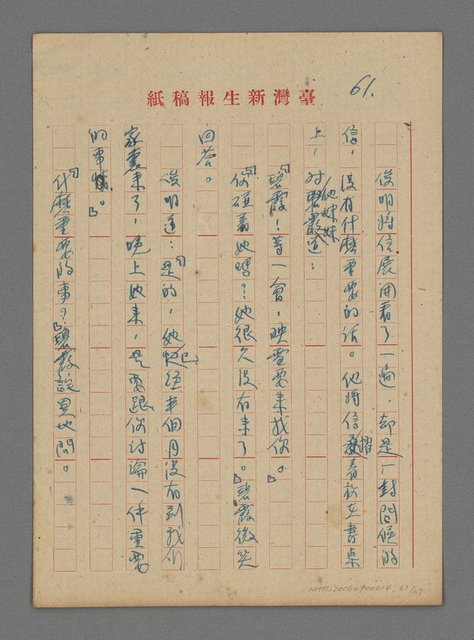 61.
臺灣新生報稿紙
俊明將信展開看了一遍，却是一封問候的
信，沒有什麼重要的話。他將信摺着放在書桌
上，对他妹妹碧霞道：
「碧霞！等一會，映雪要来找你。」
「你碰着她嗎？她很久沒有来了。」碧霞微笑
回答。
俊明道：「是的，她已經半個月沒有到我们
家裏来了，晚上她来，是要跟你讨論一件重要
的事情。」
「什麼重要的事？」碧霞詫異地問。